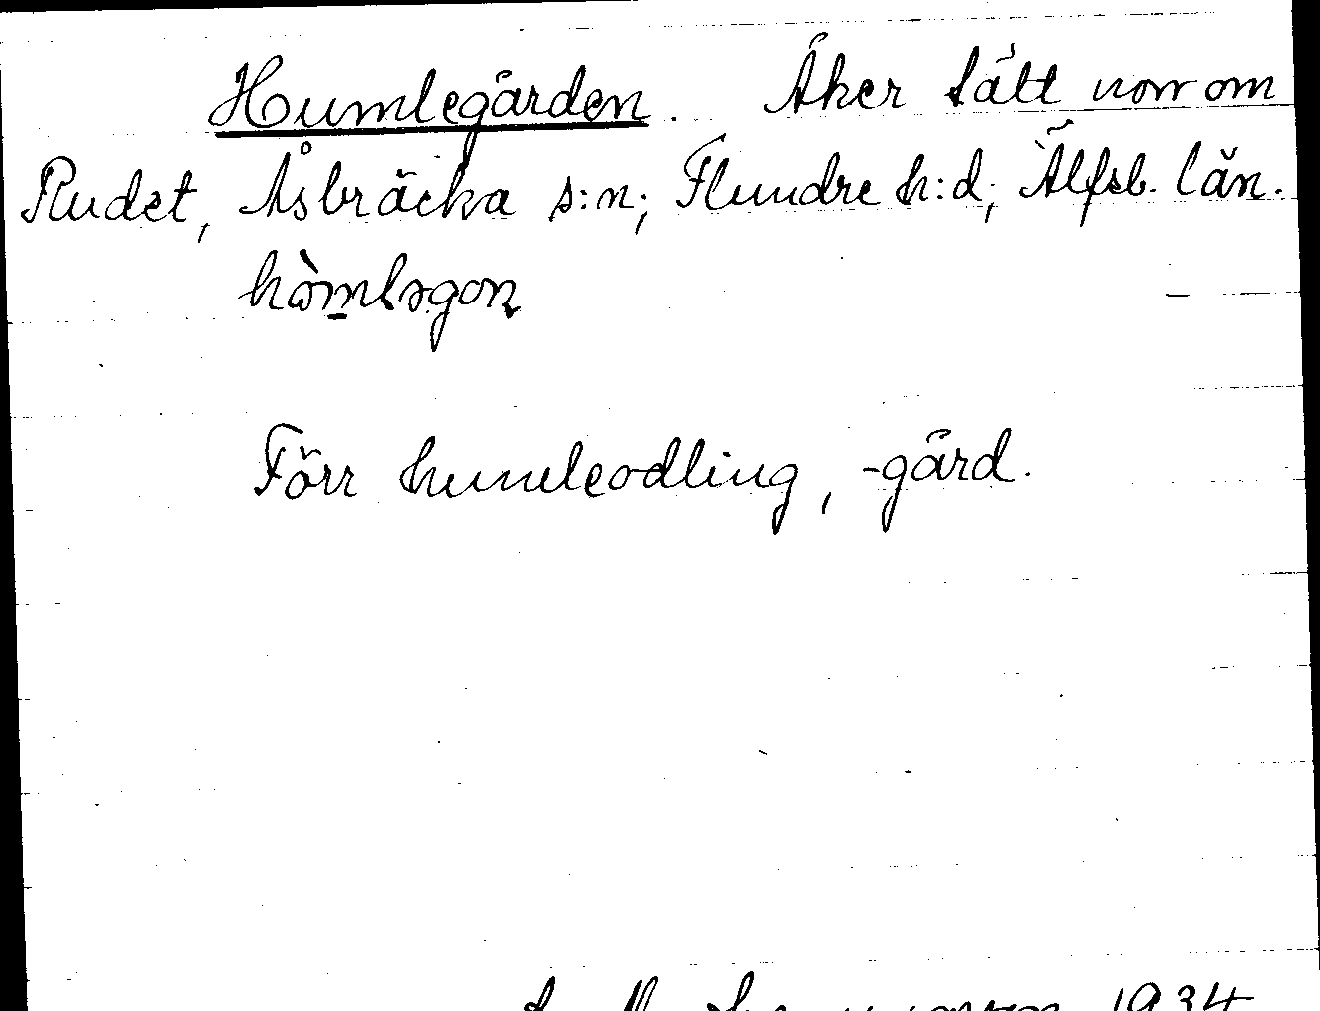 Humlegården. Åker tätt norr om
Rudet, Åsbräcka s:n; Flundre h:d; Älfsb. län.
hòmlagon
Förr humleodling, -gård.
1934